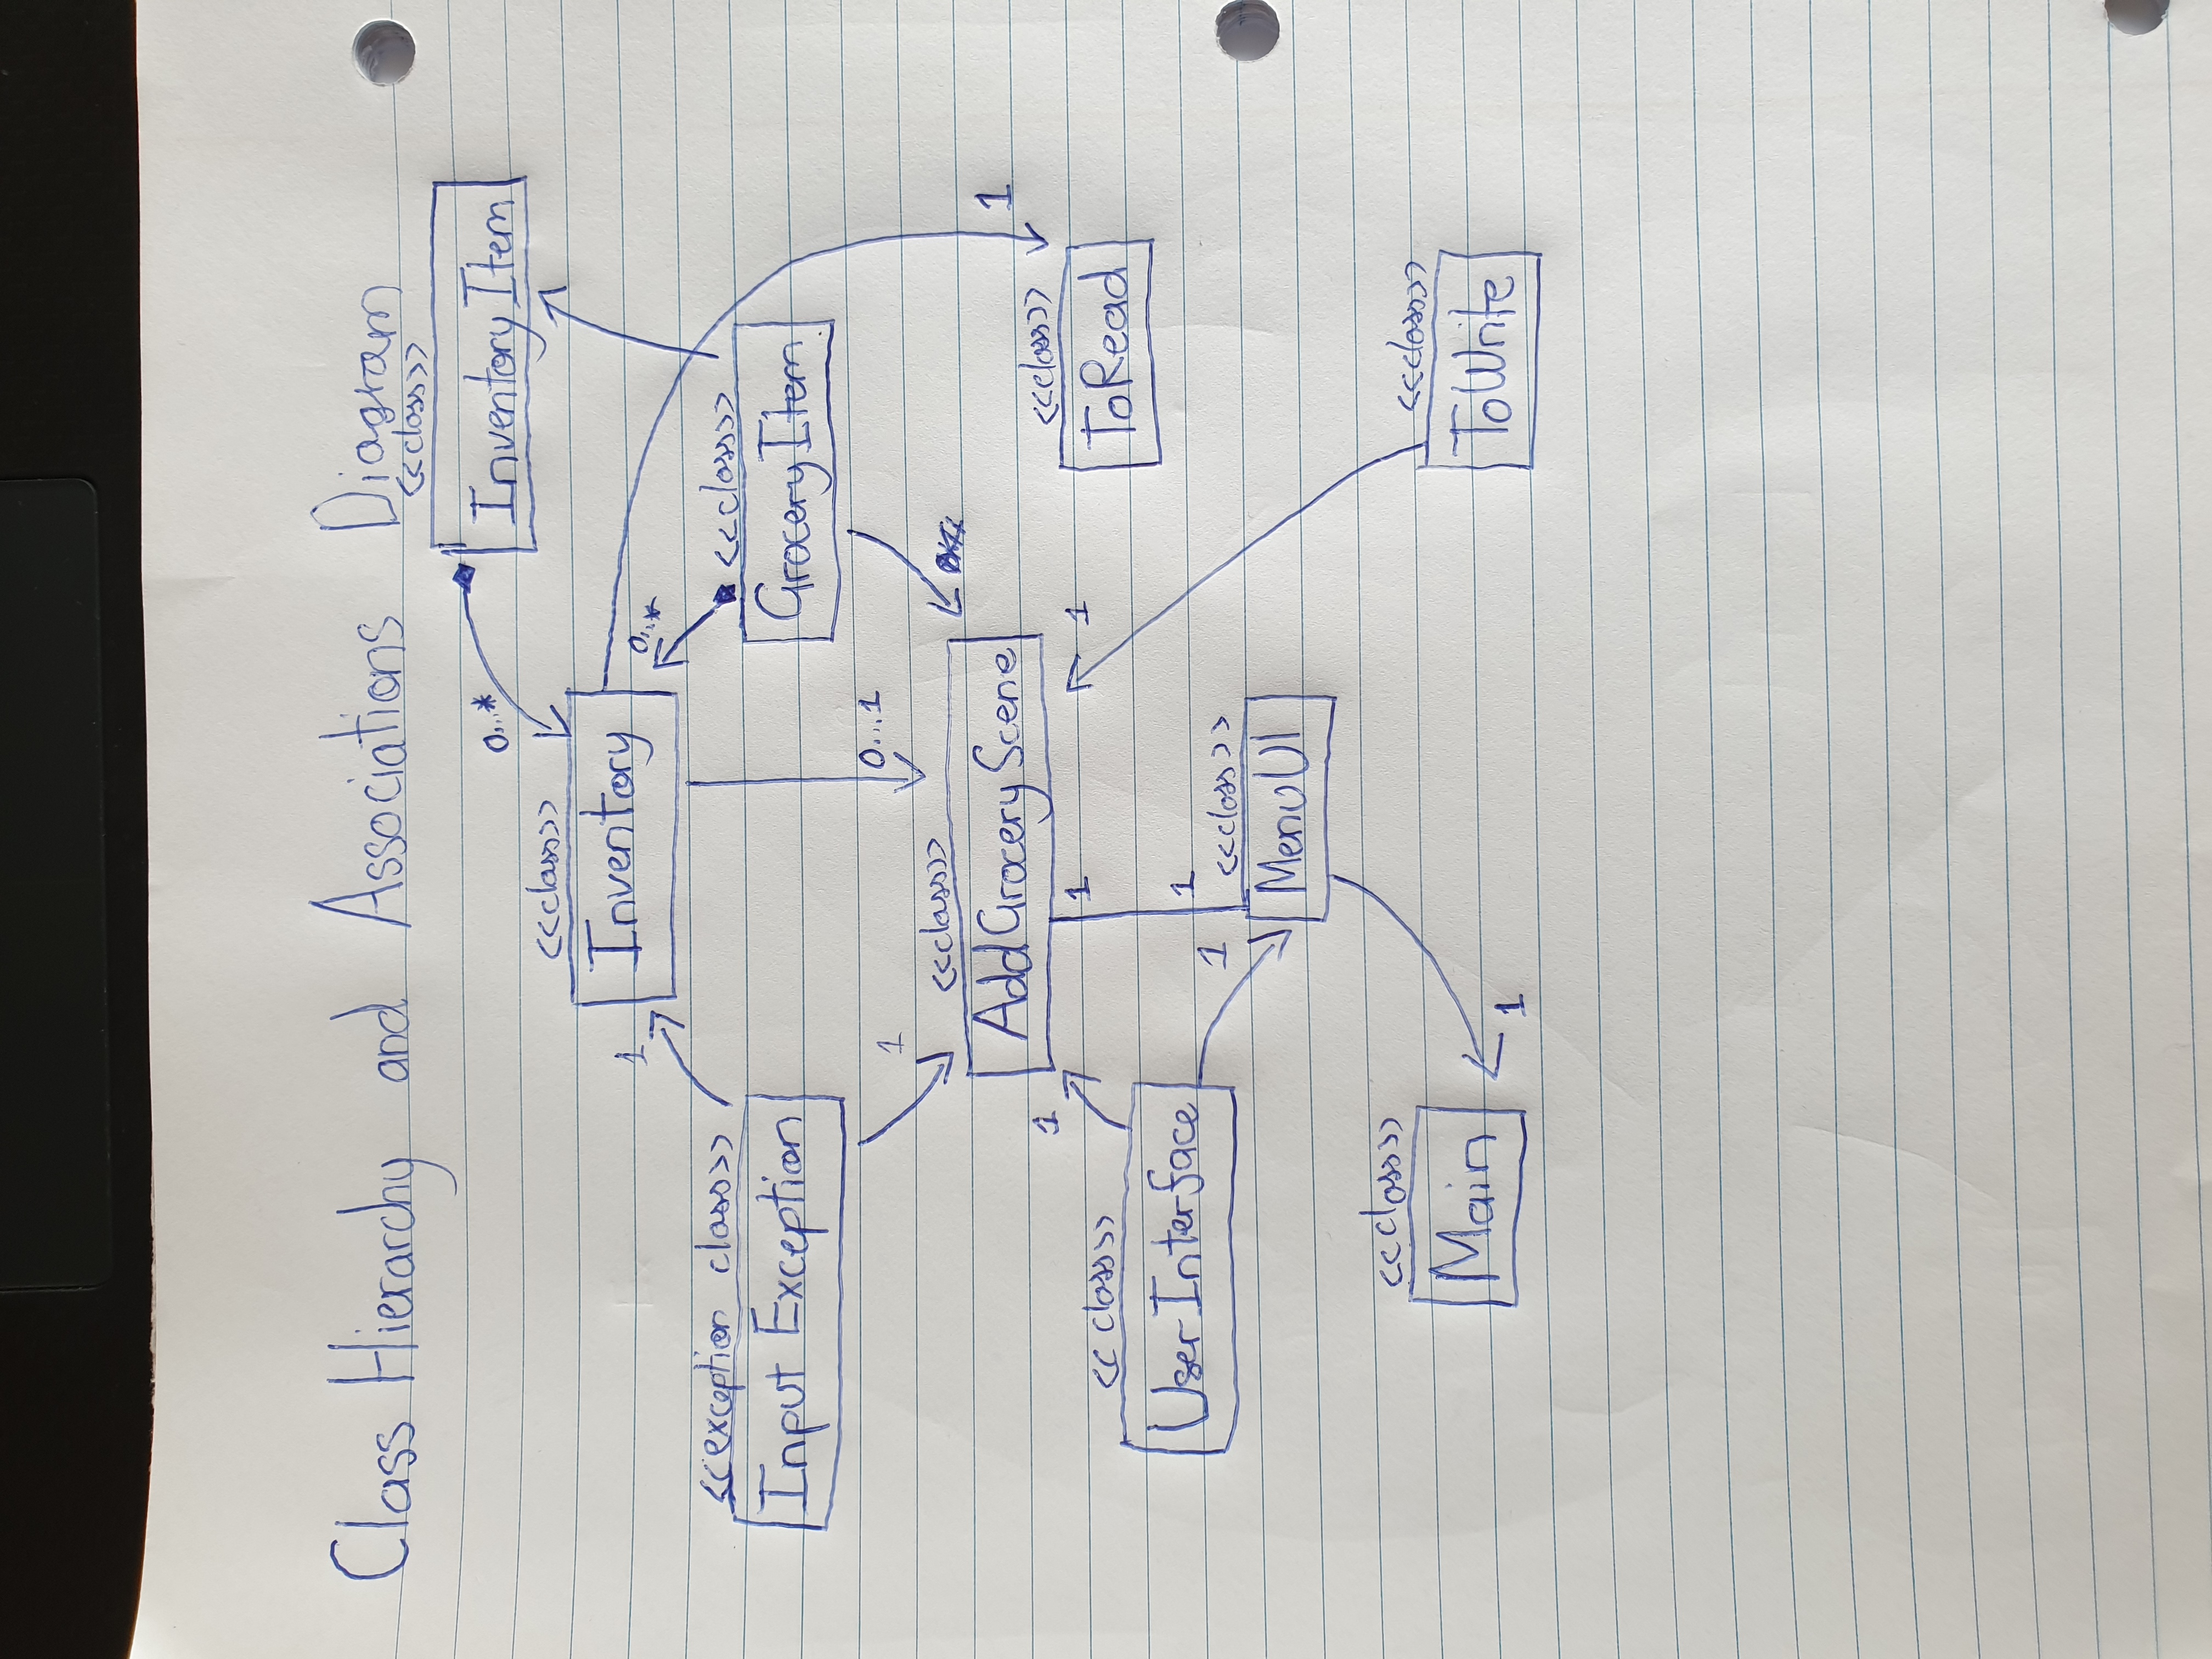 Class Hierarchy and Associations Diagram
<<class>>
InventoryItem
0...*
<<class>>
Inventory
1
0...*
<<exception class>>
Input Exception
<<class>>
GroceryItem
0...1
1
<<class>>
AddGroceryScene
1
1
1
1
<<class>>
ToRead
<<class>>
UserInterface
1
1
<<class>>
MenuUI
<<class>>
Main
1
<<class>>
ToWrite